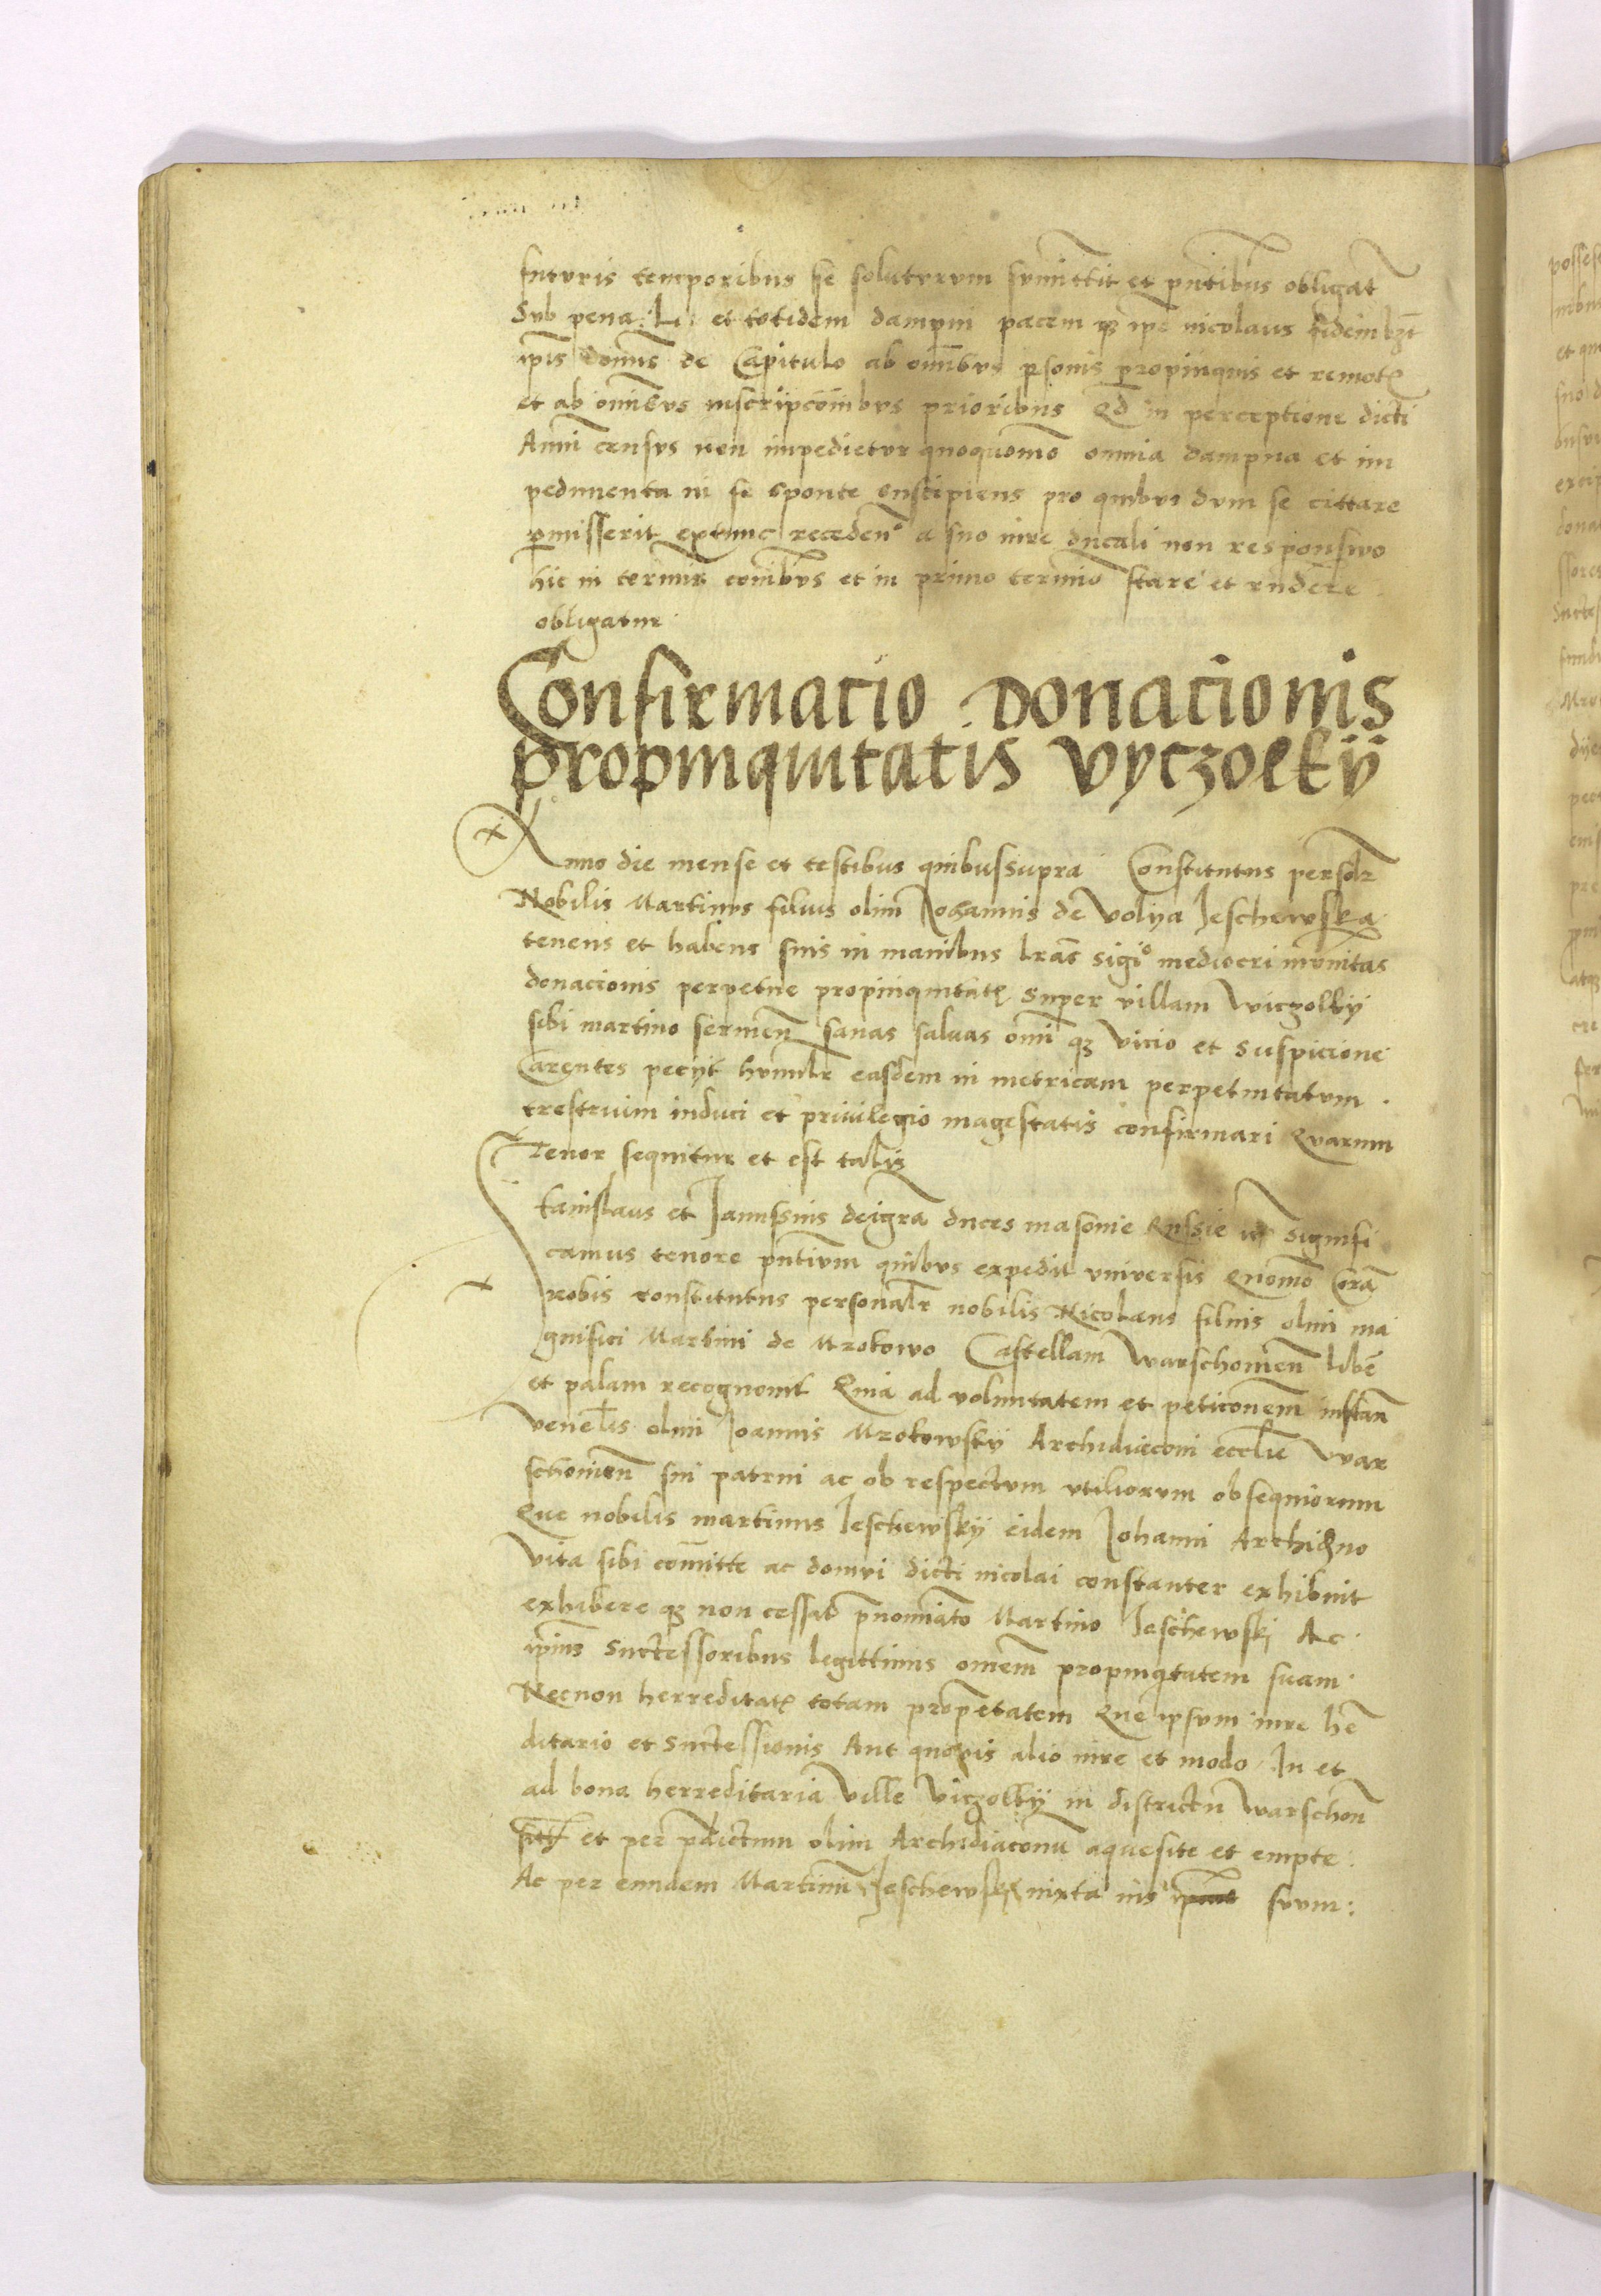 futuris temporibus se soluturum sumittit et pntibus obligat
Sub pena Li et totidem dampni pacem qz ipe nicolaus
ipis domis de Capitulo ab omibus psonis propinquis et remotis
et ab omibus inscripcoibus prioribus Qd in perceptione dicti
Anni census non impedietur quoquomo omnia dampna et im
pedimenta in se sponte suscipiens pro quibus dum se cittare
pmisserit extunc receden a suo iure ducali non responsivo
hic in termis comibus et in primo termio stare et rndere
obligatur
Confirmatio Donationis
propinquitatis vyczolky
Anno die mense et testibus quibussupra Constitutus persolr
Nobilis Martinus filius olim Johannis de Volya Jeschewska
tenens et habens suis in manibus lras sigio mediocri munitas
donacionis perpetue propinquitatis super villam wiczolky
sibi martino sermen sanas saluas omi qz vicio et suspicione
Carentes pecyt humilr easdem in metricam perpetuitatum
trestruim induci et priuilegio magestatis confirmari Quarum
Tenor sequitur et est talis
Stanislaus et Janussius deigra duces masouie Russie etc Signifi
camus tenore pntium quibus expedit universis Quomo Cora
nobis constitutus personalr nobilis Nicolaus filius olim ma
gnifici Martini de Mrokowo Castellam Warschouien libe
et palam recognouit Quia ad voluntatem et peticonem instan
venelis olim Joannis Mrokowsky Archidiaconi ecclie War
schouien sui patrui ac ob respectum utiliorum obsequiorum
Que nobilis martinus Jeschewsky eidem Johanni Archidno
vita sibi comitte ac domui dicti nicolai constanter exhibuit
exhibere qz non cessat pnomiato Martino Jeschewski Ac
ipius Successoribus legittimis omem propinqtatem suam
Necnon herreditatis totam propetatem Que ipsum iure he
ditario et Successionis Aut quovis alio iure et modo In et
ad bona herreditaria Ville Viczolky in districtu Warschon
et per pdictum olim Archidiaconu aquesite et empte
Ac per eundem Martinu Jeschewsky iuxta ius suum